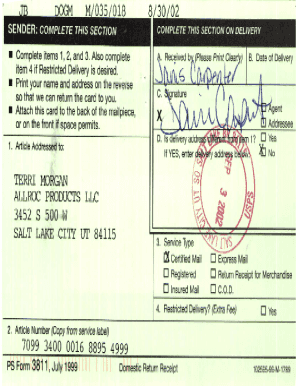 JB DOGM M/035/018 8/30/02
SENDER: COMPLETE THIS SECTION
■ Complete items 1, 2, and 3. Also complete
item 4 if Restricted Delivery is desired.
■ Print your name and address on the reverse
so that we can return the card to you.
■ Attach this card to the back of the mailpiece,
or on the front if space permits.
1. Article Addressed to:
TERRI MORGAN
ALLROC PRODUCTS LLC
3452 S 500 W
SALT LAKE CITY UT 84115
2. Article Number (Copy from service label)
7099 3400 0016 8895 4999
COMPLETE THIS SECTION ON DELIVERY
A. Received by (Please Print Clearly) B. Date of Delivery
C. Signature
X
Agent
Addressee
D. Is delivery address different from item 1? Yes
If YES, enter delivery address below: No
SEP 3 2002
USPS
3. Service Type
Certified Mail Express Mail
Registered Return Receipt for Merchandise
Insured Mail C.O.D.
4. Restricted Delivery? (Extra Fee) Yes
PS Form 3811, July 1999 Domestic Return Receipt 102595-99-M-1789